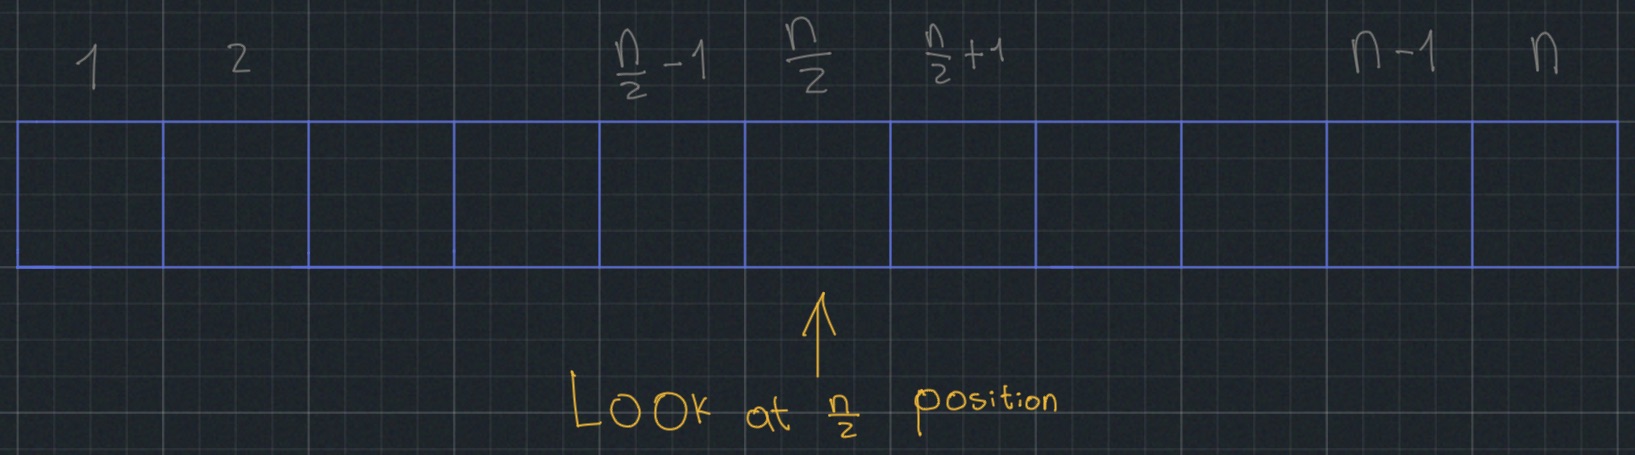 1 2 n/2 -1 n/2 n/2 +1 n-1 n
Look at n/2 position